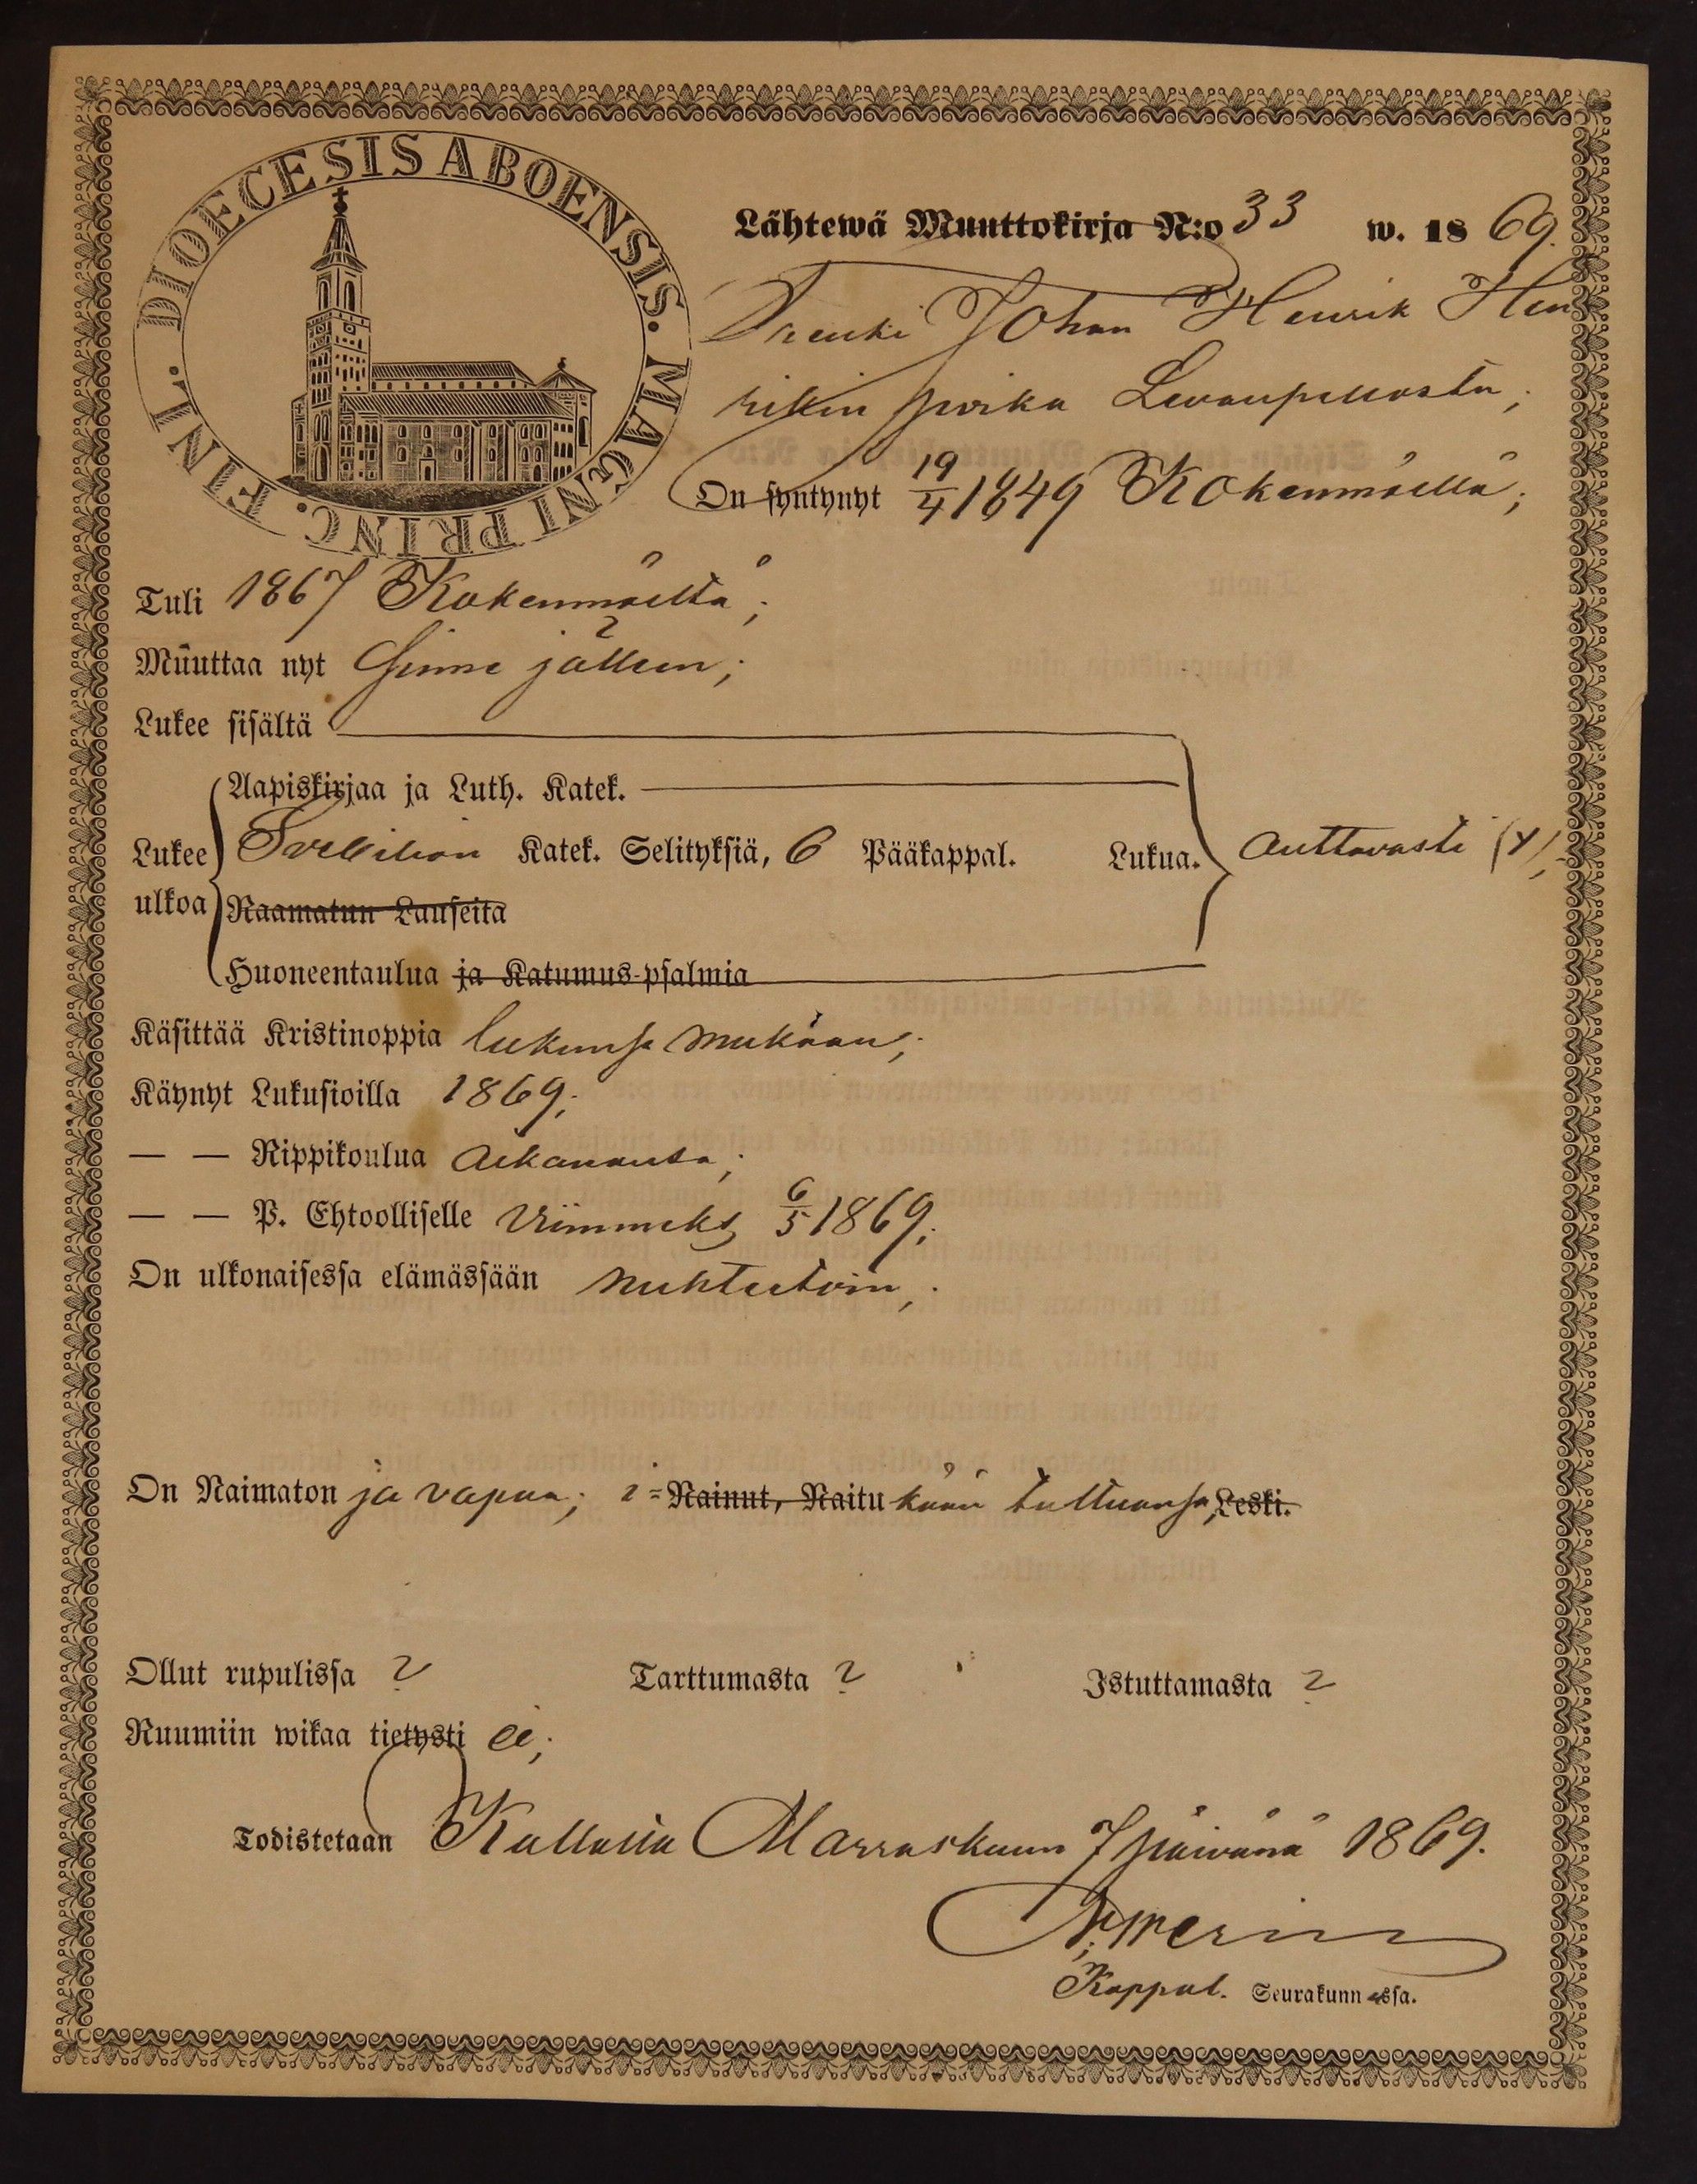 DIOECESIS ABOENSIS. MAGNI PRINC. FINL.
Lähtewä Muuttokirja N:o 33 w. 1869.
Trenki Johan Henrik Hen
rikin poika
On syntynyt 19/4 1849 Kokenmäellä;
Tuli 1867 Kokenmäeltä;
Muuttaa nyt sinne jälleen;
Lukee sisältä
Aapiskirjaa ja Luth. Katek.
Lukee Svebilion Katek. Selityksiä, 6 Pääkappal. Lukua. auttavasti
ulkoa Raamatun Lauseita
Huoneentaulua ja Katumus-psalmia
Käsittää Kristinoppia lukunsa mukaan;
Käynyt Lukusioilla 1869;
— — Rippikoulua aikanansa;
— — P. Ehtoolliselle viimmeks 6/5 1869;
On ulkonaisessa elämässään nuhteetoin;
On Naimaton ja vapaa; Nainut, Naitu tuttuansa, Leski.
Ollut rupulissa ? Tarttumasta ? Istuttamasta ?
Ruumiin wikaa tietysti ei;
Todistetaan Marraskuun 7 päivänä 1869.
Kappal. Seurakunnassa.